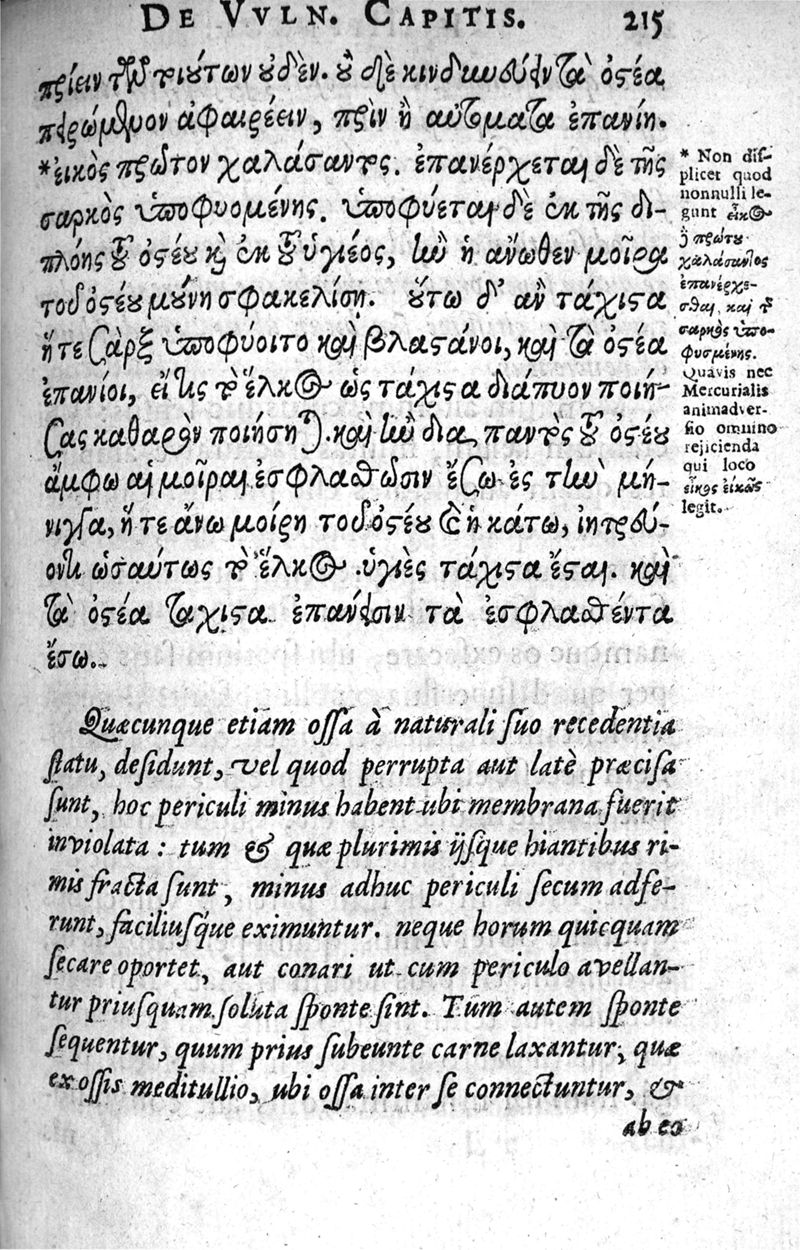 DE VVLN. CAPITIS. 215
πρίειν τῶν τοιούτων οὐδέν. οὐδὲ κινδυνεύειν τὰ ὀστέα
πειρώμενον ἀφαιρέειν, πρὶν ἢ αὐτόματα ἐπανίῃ.
*εἰκὸς πρῶτον χαλάσαντος. ἐπανέρχεται δὲ τῆς
σαρκὸς ὑποφυομένης. ὑποφύεται δὲ ἐκ τῆς δι-
πλόης τοῦ ὀστέου καὶ ἐκ τοῦ ὑγιέος, ἢν ἡ ἄνωθεν μοῖρα
τοῦ ὀστέου μούνη σφακελίσῃ. οὕτω δ' ἂν τάχιστα
ἥτε σὰρξ ὑποφύοιτο καὶ βλαστάνοι, καὶ τὰ ὀστέα
ἐπανίοι, εἴ τις τὸ ἕλκος ὡς τάχιστα διάπυον ποιή-
σας καθαρὸν ποιήσηται. καὶ ἢν διαπαντὸς τοῦ ὀστέου
ἄμφω αἱ μοῖραι ἐσφλασθῶσιν ἔσω ἐς τὴν μή-
νιγγα, ἥ τε ἄνω μοίρη τοῦ ὀστέου καὶ ἡ κάτω, ἰητρεύ-
οντι ὡσαύτως τὸ ἕλκος ὑγιὲς τάχιστα ἔσται. καὶ
τὰ ὀστέα τάχιστα ἐπανίασιν τὰ ἐσφλασθέντα
ἔσω.
* Non dis-
plicet quod
nonnulli le-
gunt εἰκὸς
ὃ πρώτου
χαλάσαντος
ἐπανέρχε-
σθαι, καὶ τῆς
σαρκὸς ὑπο-
φυομένης.
Quavis nec
Mercurialis
animadver-
sio omnino
rejicienda
qui loco
εἰκὸς εἰκῶς
legit.
Quæcunque etiam ossa à naturali suo recedentia
statu, desidunt, vel quod perrupta aut latè præcisa
sunt, hoc periculi minus habent ubi membrana fuerit
inviolata: tum & quæ plurimis ijsque hiantibus ri-
mis fracta sunt, minus adhuc periculi secum adfe-
runt, faciliusque eximuntur. neque horum quicquam
secare oportet, aut conari ut cum periculo avellan-
tur priusquam soluta sponte sint. Tum autem sponte
sequentur, quum prius subeunte carne laxantur, quæ
ex ossis meditullio, ubi ossa inter se connectuntur, &
ab eo